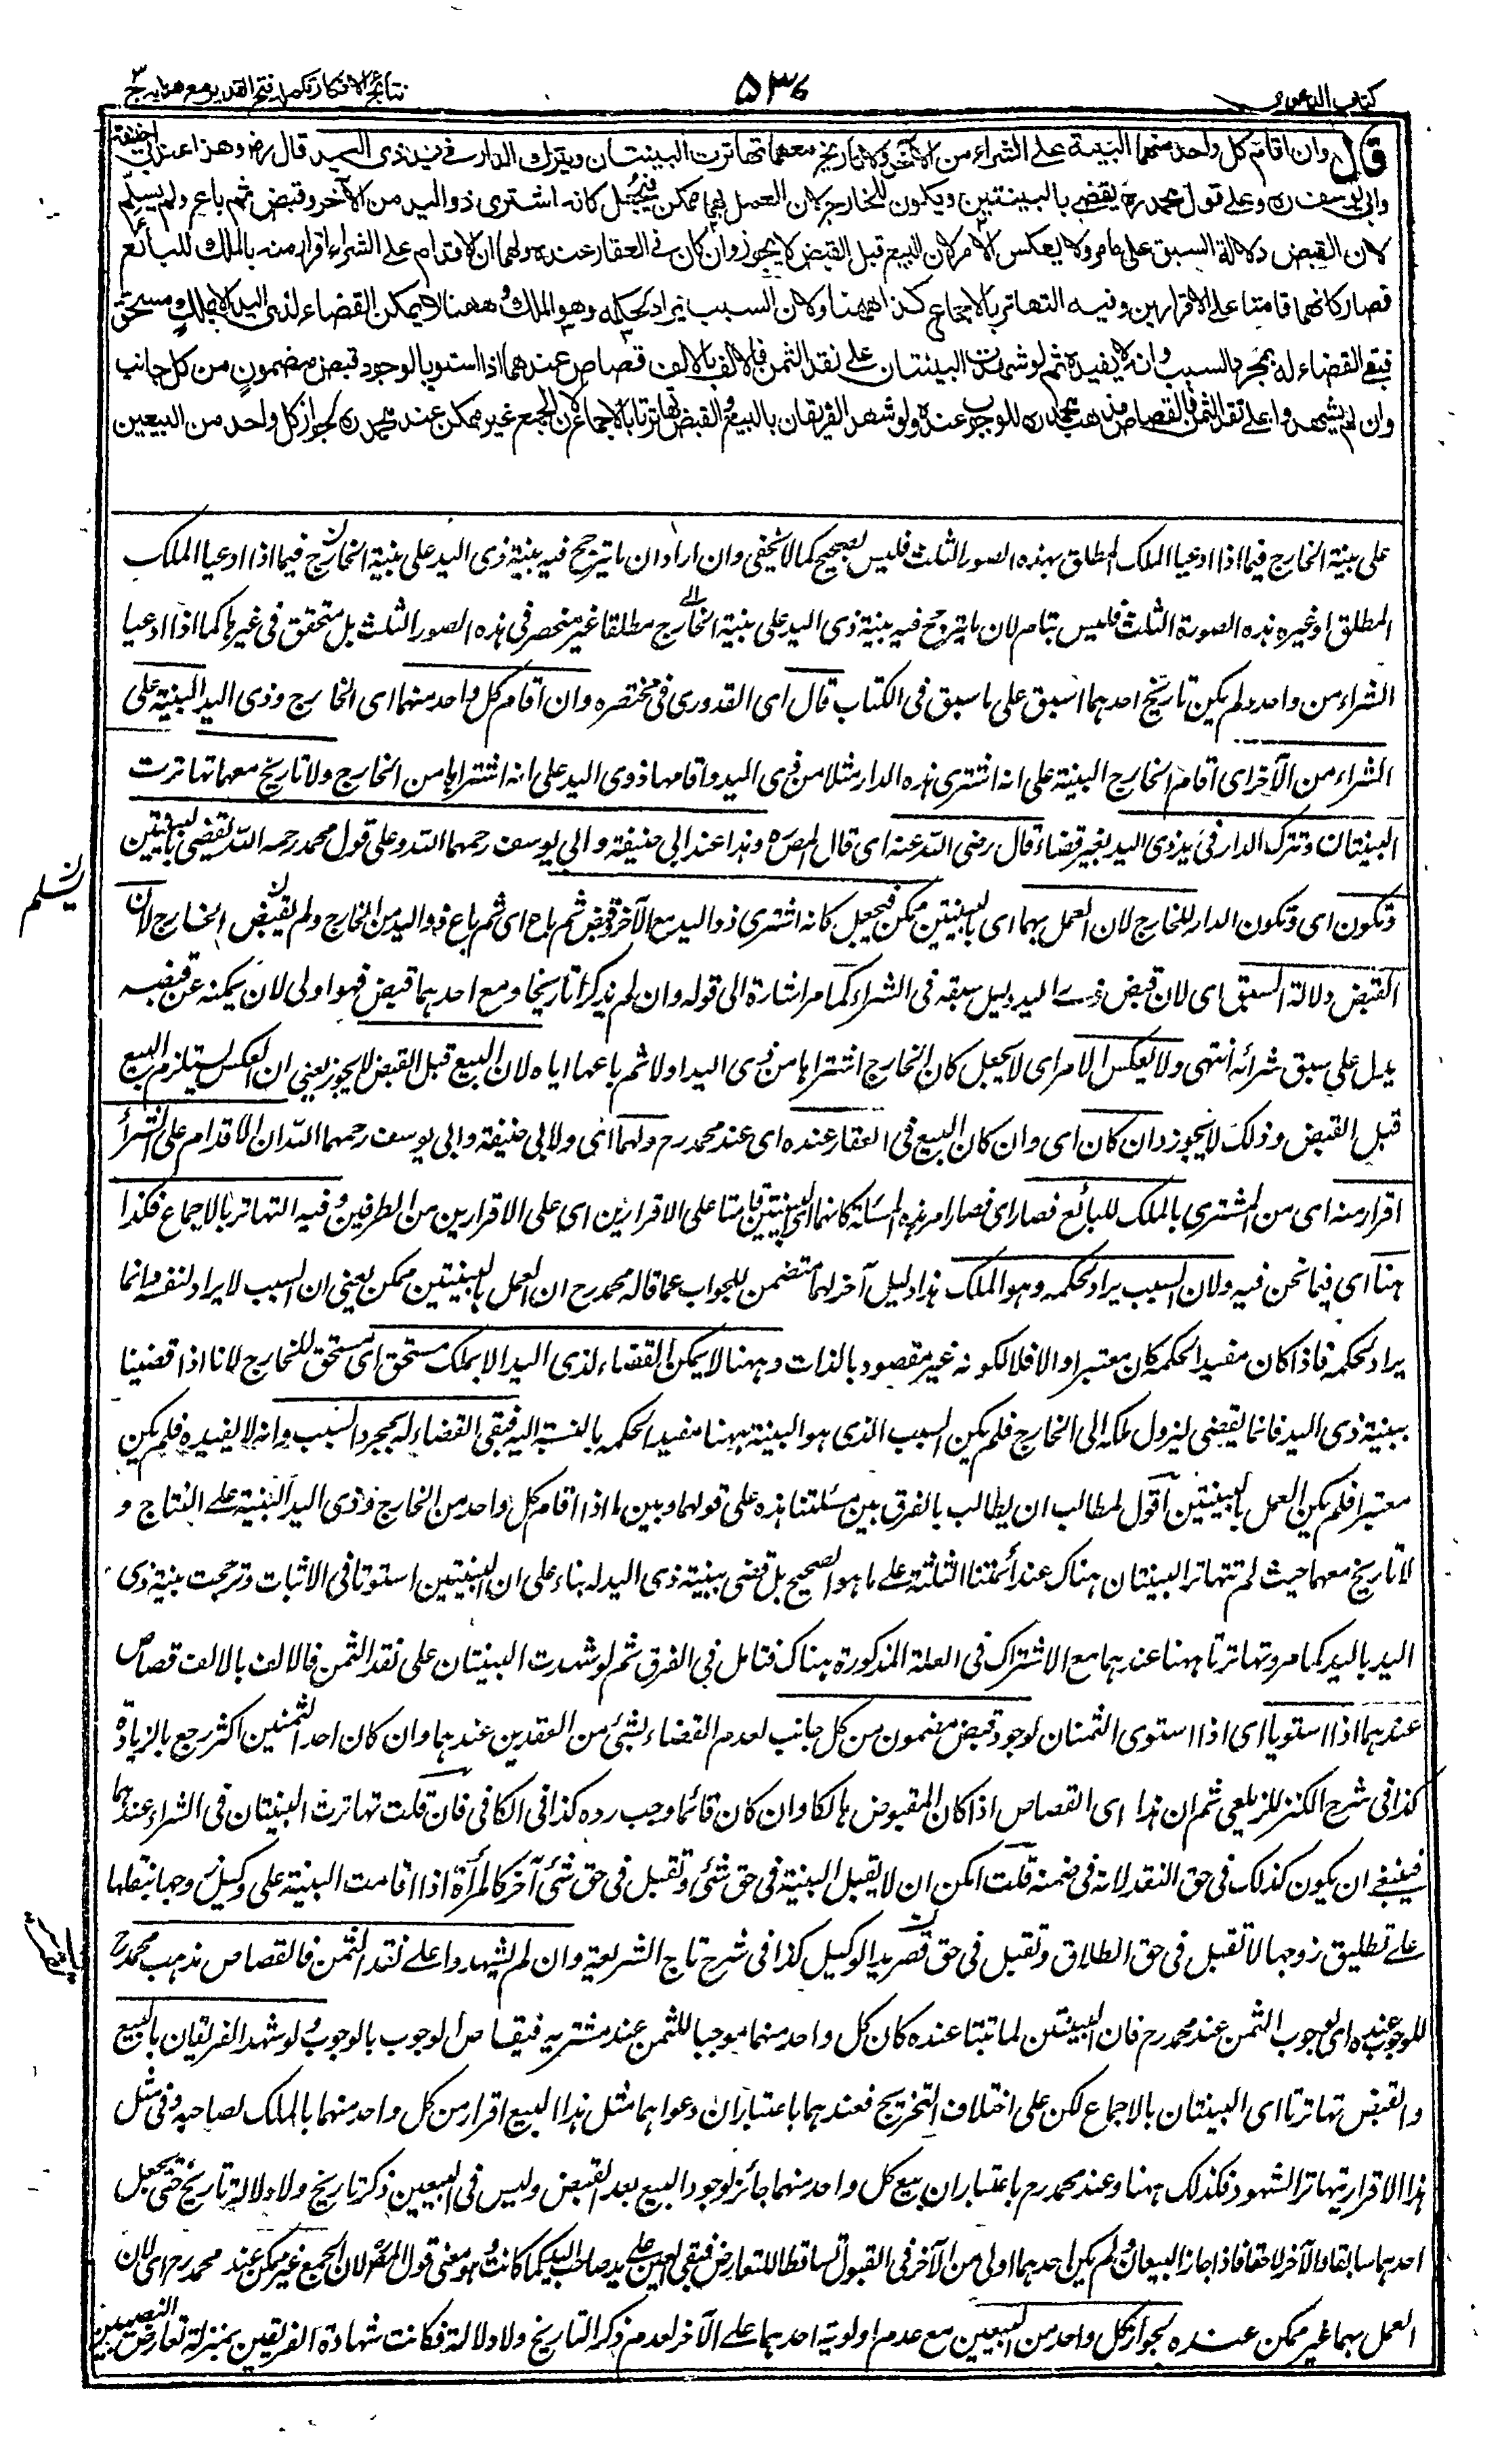 كتاب الدعوى
۵۳۶
نتائج الافكار تكملہ فتح القدير مع هدايہ ج۳
قال وان اقام كل واحد منهما البينة على الشراء من الآخر ولا تاريخ معهما تهاترت البينتان ويترك الدار في يد ذي اليد قال رض وهذا عند ابي حنيفة
وابي يوسف ره وعلى قول محمد ره يقضى بالبينتين ويكون للخارج لان العمل بهما ممكن فيجعل كانه اشترى ذو اليد من الآخر وقبض ثم باع ولم يسلم
لان القبض دلالة السبق على ما مر ولا يعكس الامر لان البيع قبل القبض لا يجوز وان كان في العقار عنده ولهما ان الاقدام على الشراء اقرار منه بالملك للبائع
فصار كانهما قامتا على الاقرارين وفيه التهاتر بالاجماع كذا ههنا ولان السبب يراد لحكمه وهو الملك وههنا لا يمكن القضاء لذي اليد الا بملك مستحق
فبقي القضاء له بمجرد السبب وانه لا يفيده ثم لو شهدت البينتان على نقد الثمن فالالف بالالف قصاص عندهما اذا استويا لوجود قبض مضمون من كل جانب
وان لم يشهدوا على نقد الثمن فالقصاص مذهب محمد ره للوجوب عنده ولو شهد الفريقان بالبيع والقبض تهاترتا بالاجماع لان الجمع غير ممكن عند محمد ره لجواز كل واحد من البيعين
على بينة الخارج فيما اذا ادعيا الملك المطلق بهذه الصور الثلث فليس بصحيح كما لا يخفى وان اراد ان ما يترجح فيه بينة ذي اليد على بينة الخارج فيما اذا ادعيا الملك
المطلق او غيره هذه الصورة الثلث فليس بتام لان ما يترجح فيه بينة ذي اليد على بينة الخارج مطلقا غير منحصر في هذه الصور الثلث بل متحقق في غيرها كما اذا ادعيا
الشراء من واحد ولم يكن تاريخ احدهما اسبق على ما سبق في الكتاب قال اي القدوري في مختصره وان اقام كل واحد منهما اي الخارج وذي اليد البينة على
الشراء من الآخر اي اقام الخارج البينة على انه اشترى هذه الدار مثلا من ذي اليد واقامها ذوي اليد على انه اشتراها من الخارج ولا تاريخ معهما تهاترت
البينتان وتترك الدار في يد ذي اليد بغير قضاء قال رضى الله عنه اي قال المصره وهذا عند ابي حنيفة وابي يوسف رحمهما الله وعلى قول محمد رحمه الله يقضى بالبينتين
وتكون اي وتكون الدار للخارج لان العمل بهما اي بالبينتين ممكن فيجعل كانه اشترى ذو اليد من الآخر وقبض ثم باع اي ثم باع ذو اليد من الخارج ولم يقبض الخارج لان
القبض دلالة السبق اي لان قبض ذي اليد دليل سبقه في الشراء كما مر اشارة الى قوله وان لم يذكرا تاريخا ومع احدهما قبض فهو اولى لان يمكنه عن قبضه
يدل على سبق شرائه انتهى ولا يعكس الامر اي لا يجعل كان الخارج اشتراها من ذي اليد اولا ثم باعها اياه لان البيع قبل القبض لا يجوز يعني ان العكس يستلزم البيع
قبل القبض وذلك لا يجوز وان كان اي وان كان البيع في العقار عنده اي عند محمد رح ولهما اي ولابي حنيفة وابي يوسف رحمهما الله ان الاقدام على الشراء
اقرار منه اي من المشتري بالملك للبائع فصار اي فصار امر هذه المسئلة كانهما اي البينتين قامتا على الاقرارين اي على الاقرارين من الطرفين وفيه التهاتر بالاجماع فكذا
هنا اي فيما نحن فيه ولان السبب يراد لحكمه وهو الملك هذا دليل آخر لهما متضمن للجواب عما قاله محمد رح ان العمل بالبينتين ممكن يعني ان السبب لا يراد لنفسه وانما
يراد لحكمه فاذا كان مفيدا لحكمه كان معتبرا والا فلا لكونه غير مقصود بالذات وههنا لا يمكن القضاء لذي اليد الا بملك مستحق اي مستحق للخارج لانا اذا قضينا
ببينة ذي اليد فانما يقضى ليزول ملكه الى الخارج فلم يكن السبب الذي هو البينة ههنا مفيدا لحكمه بالنسبة اليه فبقي القضاء له بمجرد السبب وانه لا يفيده فلم يكن
معتبرا فلم يكن العمل بالبينتين اقول لمطالب ان يطالب بالفرق بين مسئلتنا هذه على قولهما وبين ما اذا اقام كل واحد من الخارج وذي اليد البينة على النتاج و
لا تاريخ معهما حيث لم تتهاتر البينتان هناك عند أئمتنا الثلثة على ما هو الصحيح بل قضى ببينة ذي اليد له بناء على ان البينتين استوتا في الاثبات وترجحت بينة ذي
اليد باليد كما مر وتهاترتا ههنا عندهما مع الاشتراك في العلة المذكورة هناك فتامل في الفرق ثم لو شهدت البينتان على نقد الثمن فالالف بالالف قصاص
عندهما اذا استويا اي اذا استوى الثمنان لوجود قبض مضمون من كل جانب لعدم القضاء بشئ من العقدين عندهما وان كان احد الثمنين اكثر رجع بالزيادة
كذا في شرح الكنز للزيلعي ثم ان هذا اي القصاص اذا كان المقبوض هالكا وان كان قائما وجب رده كذا في الكافي فان قلت تهاترت البينتان في الشراء عندهما
فينبغي ان يكون كذلك في حق النقد لانه في ضمنه قلت امكن ان لا يقبل البينة في حق شئ وتقبل في حق شئ آخر كالمرأة اذا اقامت البينة على وكيل زوجها بنقلها
على تطليق زوجها لا تقبل في حق الطلاق وتقبل في حق قصر يد الوكيل كذا في شرح تاج الشريعة وان لم يشهدوا على نقد الثمن فالقصاص مذهب محمد رح
للوجوب عنده اي لوجوب الثمن عند محمد رح فان البينتين لما ثبتا عنده كان كل واحد منهما موجبا للثمن عند مشتريه فيتقاص الوجوب بالوجوب ولو شهد الفريقان بالبيع
والقبض تهاترتا اي البينتان بالاجماع لكن على اختلاف التخريج فعندهما باعتبار ان دعواهما مثل هذا البيع اقرار من كل واحد منهما بالملك لصاحبه وفي مثل
هذا الاقرار يتهاتر الشهود فكذلك ههنا وعند محمد رح باعتبار ان بيع كل واحد منهما جائز لوجود البيع بعد القبض وليس في البيعين ذكر تاريخ ولا دلالة تاريخ حتى يجعل
احدهما سابقا والآخر لاحقا فاذا جاز البيعان ولم يكن احدهما اولى من الآخر في القبول تساقطا للتعارض فبقي العين على يد صاحب اليد كما كانت وهو معنى قول المصره لان الجمع غير ممكن عند محمد رح اي لان
العمل بهما غير ممكن عنده لجواز كل واحد من البيعين مع عدم اولوية احدهما على الآخر لعدم ذكر التاريخ ولا دلالة فكانت شهادة الفريقين بمنزلة تعارض النصيين